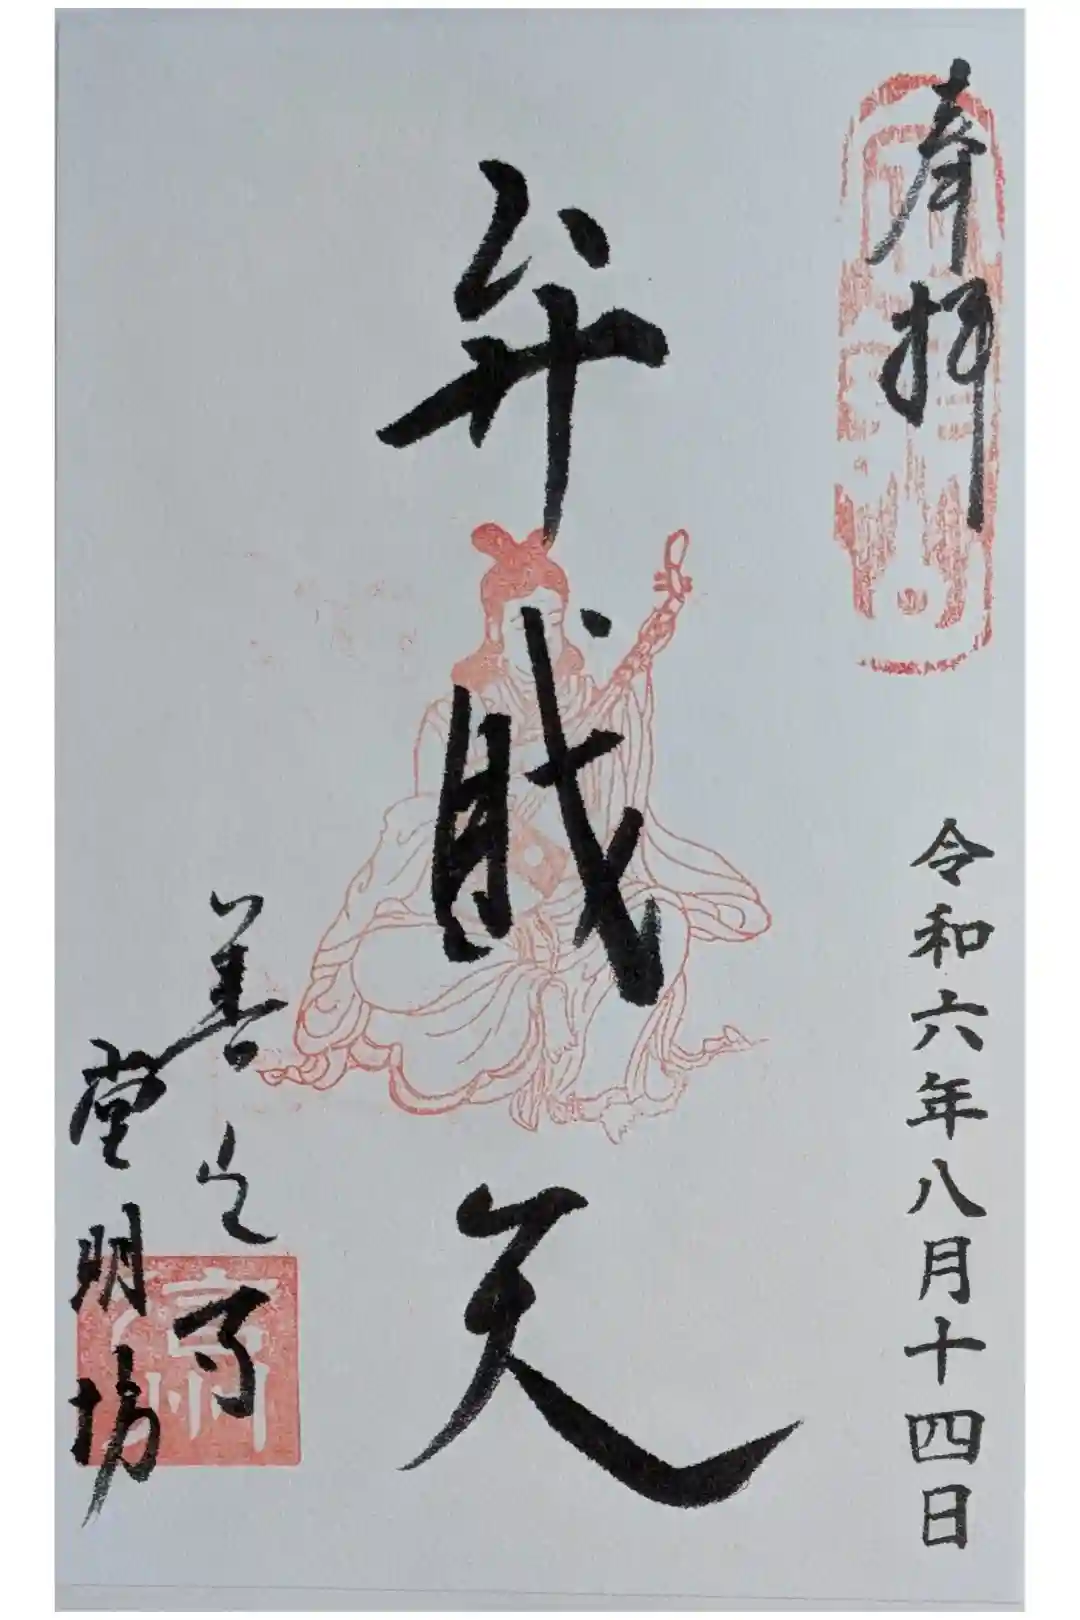 奉拝
令和六年八月十四日
弁財天
善之寺
堂明坊